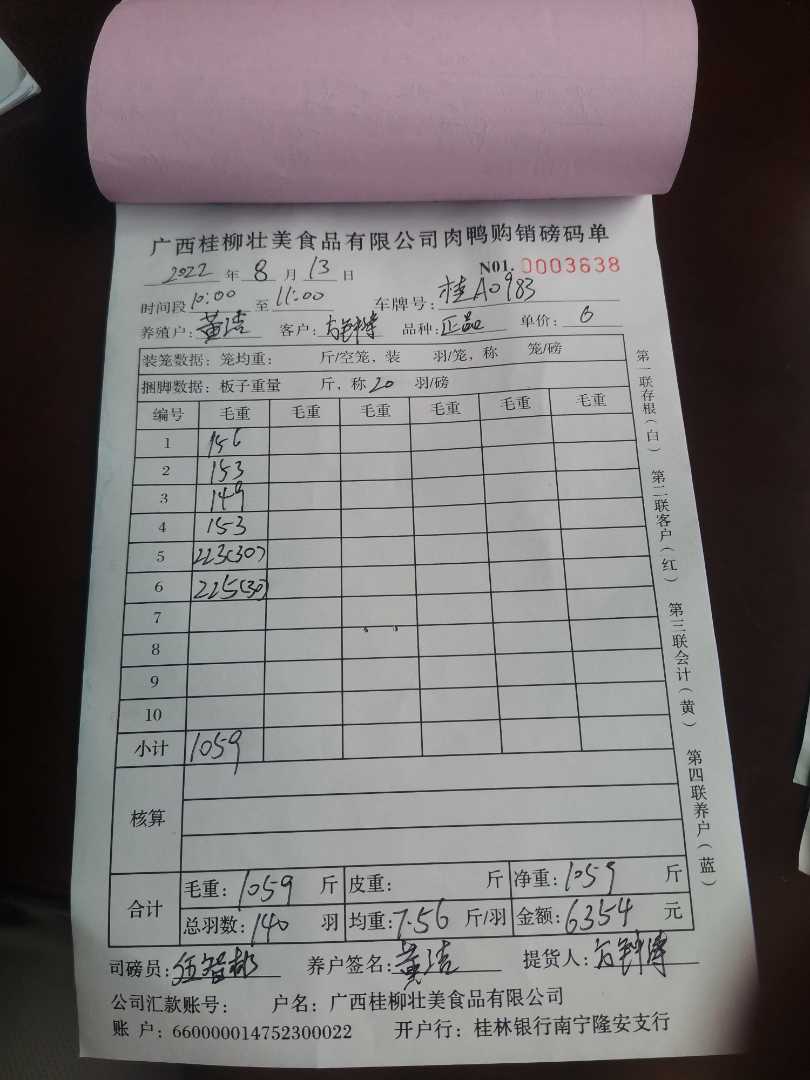 广西桂柳壮美食品有限公司肉鸭购销磅码单
2022 年 8 月 13 日 N01. 0003638
时间段 10:00 至 11:00 车牌号: 桂A0983
养殖户: 黄洁 客户: 方钟 品种: 正品 单价: 6
装笼数据: 笼均重: 斤/空笼, 装 羽/笼, 称 笼/磅
捆脚数据: 板子重量 斤, 称 20 羽/磅
编号 毛重 毛重 毛重 毛重 毛重 毛重
1 156
2 153
3 149
4 153
5 223(30)
6 225(30)
7
8
9
10
小计 1059
核算
合计 毛重: 1059 斤 皮重: 斤 净重: 1059 斤
总羽数: 140 羽 均重: 7.56 斤/羽 金额: 6354 元
司磅员: 养户签名: 黄洁 提货人: 方钟
公司汇款账号: 户名: 广西桂柳壮美食品有限公司
账 户: 660000014752300022 开户行: 桂林银行南宁隆安支行
第一联存根(白) 第二联客户(红) 第三联会计(黄) 第四联养户(蓝)